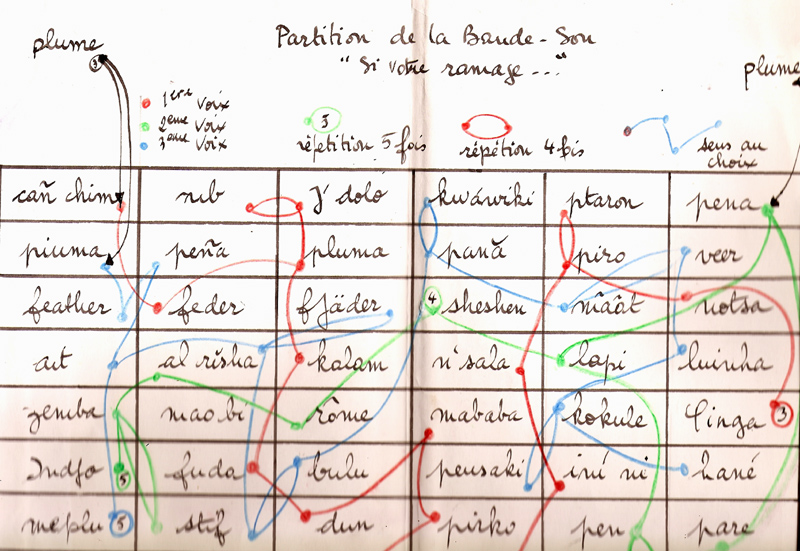 Partition de la Bande-Son
plume
"Si votre ramage..."
plume
3
1ère Voix
2ème Voix
3ème Voix
5
répetition 5 fois
répétition 4 fois
sens au
choix
cañ chim nib j' dolo kwáwiki ptaron pena
piuma peña pluma pană piro veer
feather feder fjäder 4 sheshen mâât notsa
ait al rīsha kalam n'sala lapi luinha
zemba mao bi rôme mababa kokule linga 3
Indjo 5 fuda bulu pensaki ini ni hané
meplu 5 stif dun pirko pen pare